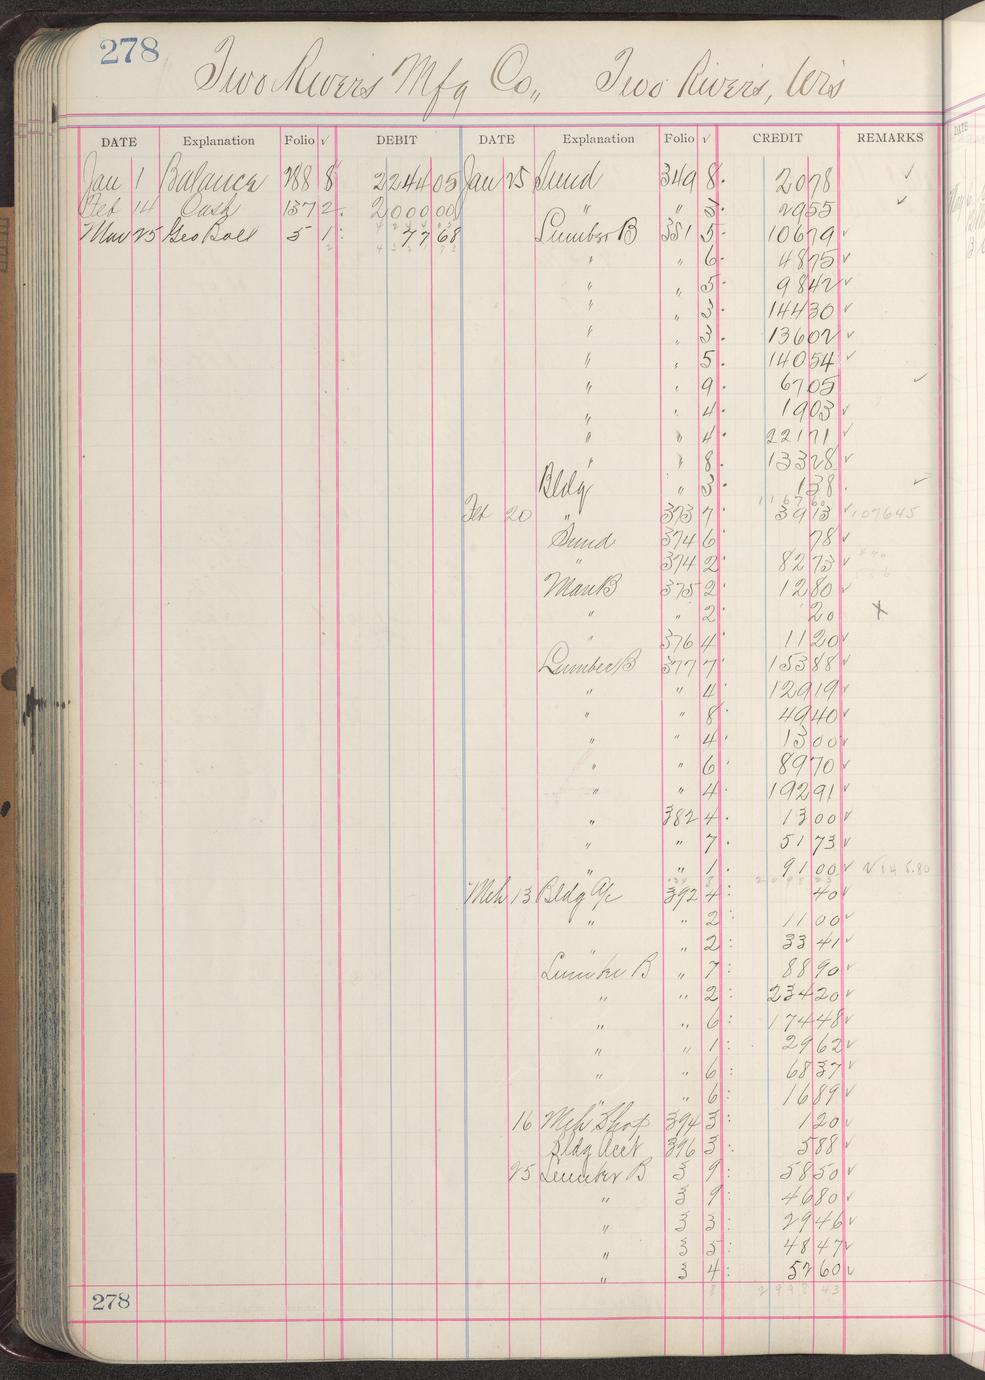 278
Two Rivers Mfg Co., Two Rivers, Wis
DATE Explanation Folio √ DEBIT DATE Explanation Folio √ CREDIT REMARKS
Jan 1 Balance 288 8 2244 05 Jan 25 Sund 349 8 20 78 ✓
Feb 14 Cash 137 2 2000 00 " " 3 29 55 ✓
Mar 25 Geo Ball 5 1 77 68 Lumber B 351 5 106 79 ✓
" " 6 48 75 ✓
" " 5 98 42 ✓
" " 3 144 30 ✓
" " 3 136 02 ✓
" " 5 140 54 ✓
" " 9 67 05 ✓
" " 4 19 03 ✓
" " 4 221 71 ✓
" " 8 133 28 ✓
Bldg " 3 1 38 ✓
1167 60
Feb 20 " 373 7 39 13 ✓ 1076 45
Sund 374 6 78 ✓
" 374 2 82 73 ✓
Man B 375 2 12 80 ✓
" " 2 20 X
" 376 4 11 20 ✓
Lumber B 377 7 153 88 ✓
" " 4 129 19 ✓
" " 8 49 40 ✓
" " 4 13 00 ✓
" " 6 89 70 ✓
" " 4 192 91 ✓
" 382 4 13 00 ✓
" " 7 51 73 ✓
" " 1 91 00 ✓
Mch 13 Bldg a/c 392 4 40 ✓
" " 2 11 00 ✓
" " 2 33 41 ✓
Lumber B " 7 88 90 ✓
" " 2 234 20 ✓
" " 6 174 48 ✓
" " 1 29 62 ✓
" " 6 68 37 ✓
" " 6 16 89 ✓
16 Mch Shop 394 3 1 20 ✓
Bldg Acct 396 3 5 88 ✓
25 Lumber B 3 9 58 50 ✓
" 3 9 46 80 ✓
" 3 3 29 46 ✓
" 3 5 48 47 ✓
" 3 4 52 60 ✓
2998 43
278